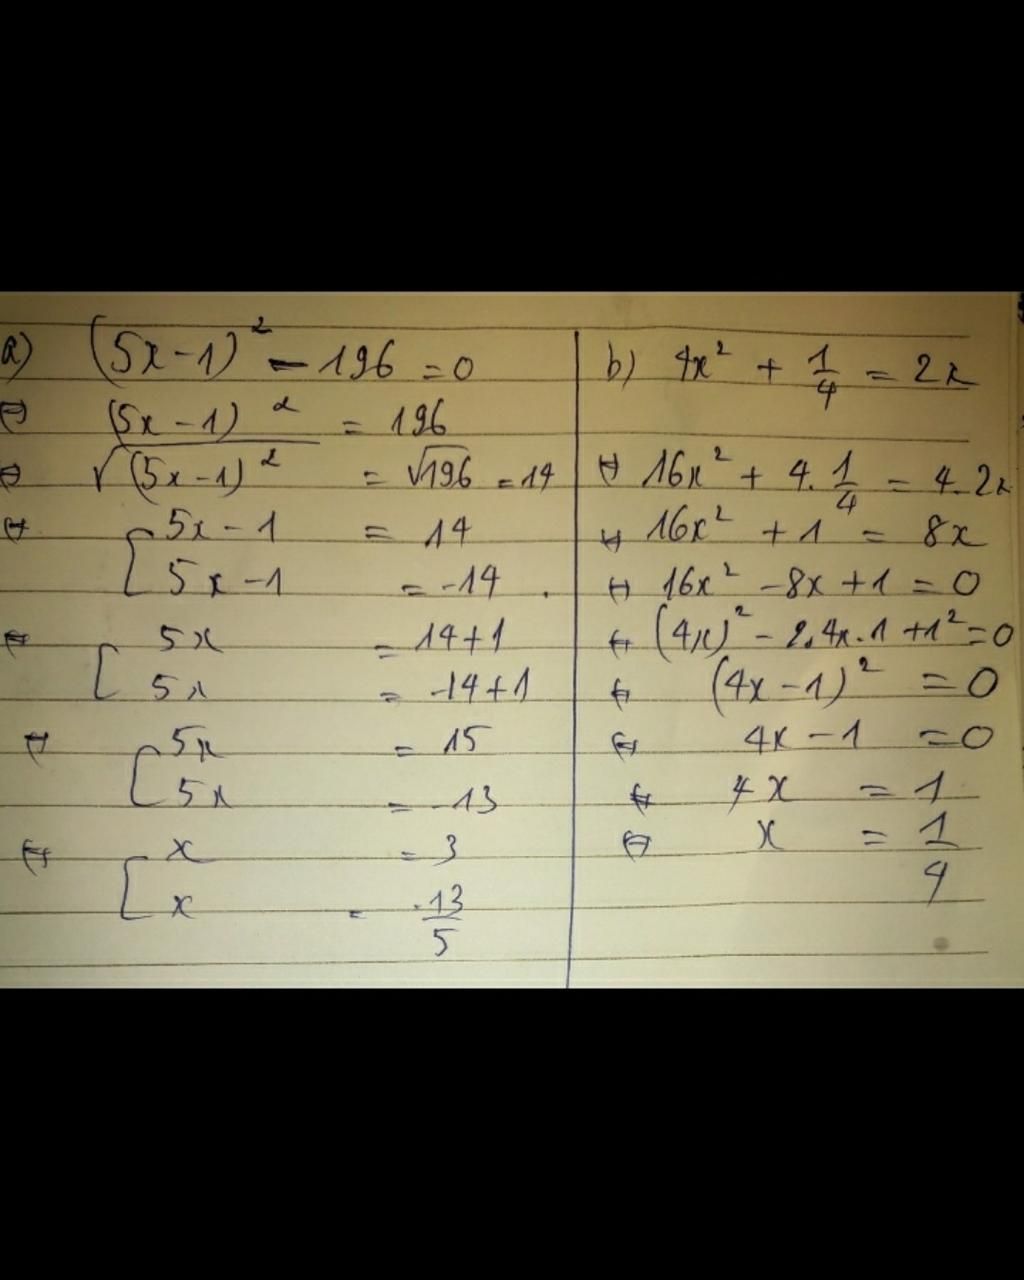 a) (5x-1)² - 196 = 0
⇔ (5x-1)² = 196
⇔ √(5x-1)² = √196 = 14
⇔ [ 5x-1 = 14
5x-1 = -14 .
⇔ [ 5x = 14+1
5x = -14+1
⇔ [ 5x = 15
5x = -13
⇔ [ x = 3
x = -13/5
b) 4x² + 1/4 = 2x
⇔ 16x² + 4.1/4 = 4.2x
⇔ 16x² + 1 = 8x
⇔ 16x² - 8x + 1 = 0
⇔ (4x)² - 2.4x.1 + 1² = 0
⇔ (4x-1)² = 0
⇔ 4x-1 = 0
⇔ 4x = 1
⇔ x = 1/4